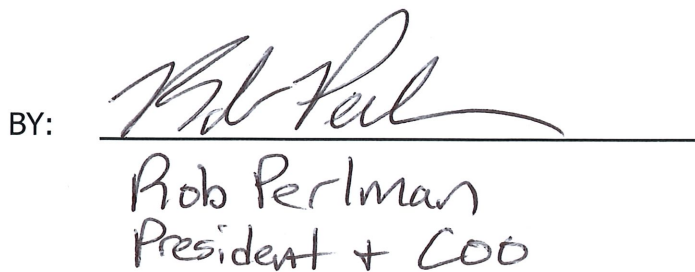 BY: Rob Perlman
Rob Perlman
President + COO